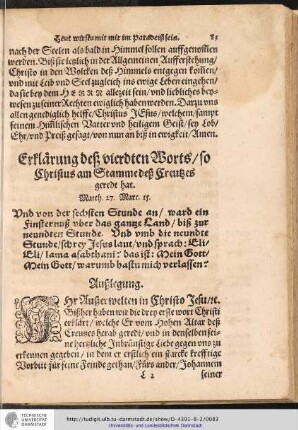 Heut wirstu mit mir im Paradeiß sein. 85
nach der Seelen als bald in Himmel sollen auffgenossen
werden. Biß sie letzlich in der Allgemeinen Aufferstehung/
Christo in den Wolcken deß Himmels entgegen kommen/
und mit Leib und Seel zugleich ins ewige Leben eingehen/
da sie bey dem HERRN allezeit sein/ und liebliches bey-
wesen zu seiner Rechten ewiglich haben werden. Darzu uns
allen genediglich helffe/ Christus JEsus/ welchem/ sampt
seinem Himlischen Vatter und heiligen Geist/ sey Lob/
Ehr/ und Preiß gesagt/ von nun an biß in ewigkeit/ Amen.
Erklärung deß vierdten Worts/ so
Christus am Stamme deß Creutzes
geredt hat.
Matth. 27. Marc. 15.
Vnd von der sechsten Stunde an/ ward ein
Finsternuß vber das gantze Land/ biß zur
neundten Stunde. Vnd vmb die neundte
Stunde/ schrey Jesus laut/ vnd sprach: Eli/
Eli/ lama asabthani? das ist: Mein Gott/
Mein Gott/ warumb hastu mich verlassen?
Außlegung.
IHr Außerwelten in Christo Jesu/ etc.
Bißher haben wir die drey erste wort Christi
erklärt/ welche Er vom Hohen Altar deß
Creutzes herab geredt/ und in denselben sei-
ne hertzliche Inbrünstige Liebe gegen uns zu
erkennen gegeben/ in dem er erstlich ein starcke krefftige
Vorbitt für seine Feinde gethan/ Fürs ander/ Johannem
L 2 seiner
http://tudigit.ulb.tu-darmstadt.de/show/O-4391-8-2/0083
Universitäts- und Landesbibliothek Darmstadt